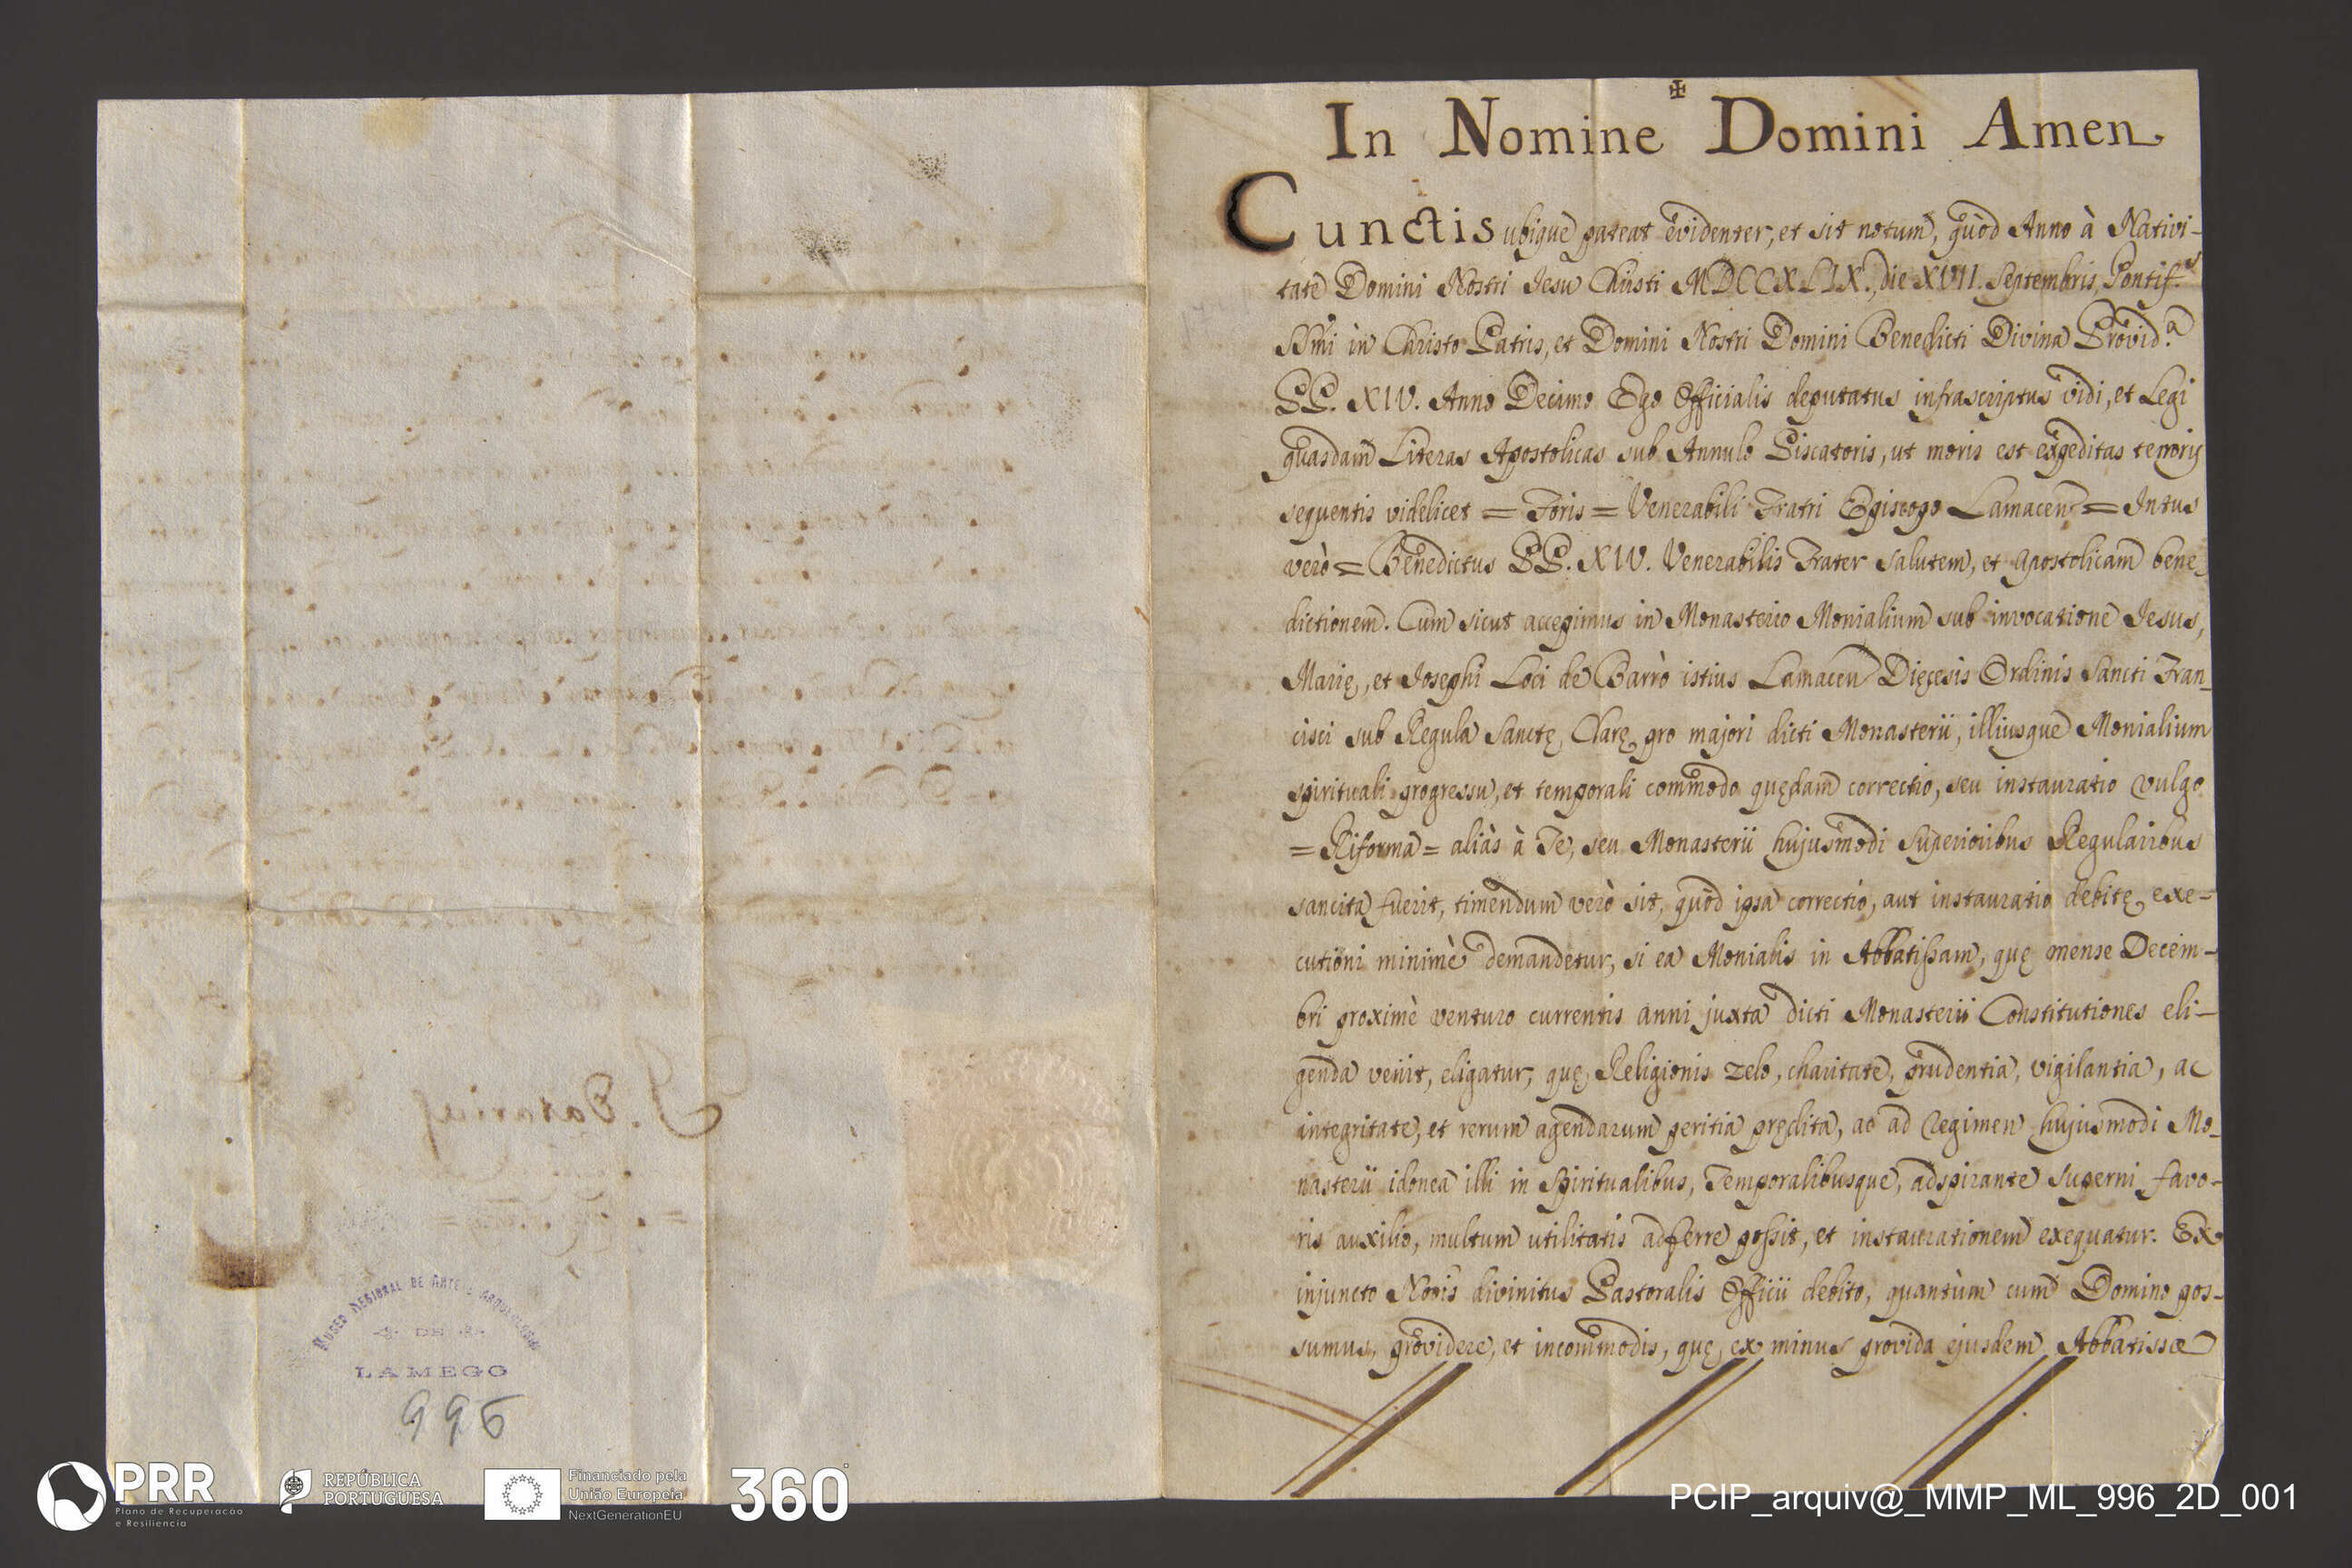 In Nomine Domini Amen
Cunctis ubique pateat evidenter, et sit notum, quòd Anno à Nativi-
tate Domini Nostri Jesu Christi MDCCXLIX., die XVII. Septembris, Pontif.s
SSmi in Christo Patris, et Domini Nostri Domini Benedicti Divina Provid.a
PP. XIV. Anno Decimo Ego Officialis deputatus infrascriptus vidi, et Legi
quasdam Literas Apostolicas sub Annulo Piscatoris, ut moris est expeditas tenoris
sequentis videlicet = Foris = Venerabili Fratri Episcopo Lamacen = Intus
verò = Benedictus PP. XIV. Venerabilis Frater salutem, et apostolicam bene-
dictionem. Cum sicut accepimus in Monasterio Monialium sub invocatione Jesus,
Marię, et Josephi Loci de Barrò istius Lamacen Dięcesis Ordinis Sancti Fran-
cisci sub Regula Sanctę Clarę pro majori dicti Monasterii, illiusque Monialium
spirituali progressu, et temporali commodo quędam correctio, seu instauratio vulgo
= Riforma = aliàs à Te, seu Monasterii hujusmodi Superioribus Regularibus
sancita fuerit, timendum verò sit, quòd ipsa correctio, aut instauratio debitę exe-
cutioni minimè demandetur, si ea Monialis in Abbatissam, quę mense Decem-
bri proximè venturo currentis anni juxta dicti Monasterii Constitutiones eli-
genda venit, eligatur, quę Religionis zelo, charitate, prudentia, vigilantia, ac
integritate, et rerum agendarum peritia prędita, ac ad regimen hujusmodi Mo-
nasterii idonea illi in Spiritualibus, Temporalibusque, adspirante superni favo-
ris auxilio, multum utilitatis adferre possit, et instaurationem exequatur. Ex
injuncto Nobis divinitus Pastoralis Officii debito, quantùm cum Domino pos-
sumus, providere, et incommodis, quę ex minus provida ejusdem Abbatissæ
MUSEU REGIONAL DE ARTE E ARQUEOLOGIA
DE
LAMEGO
996
PRR
Plano de Recuperação
e Resiliência
REPÚBLICA
PORTUGUESA
Financiado pela
União Europeia
NextGenerationEU
360°
PCIP_arquiv@_MMP_ML_996_2D_001